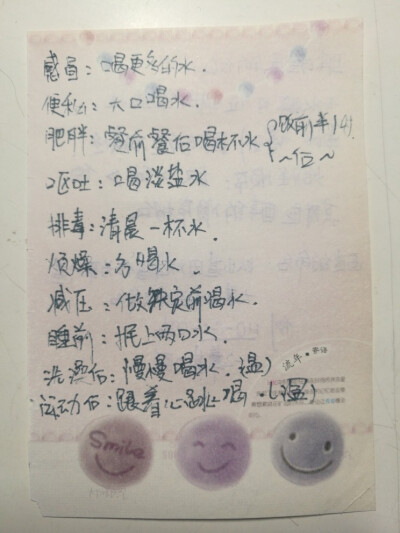 感冒：喝更多的水.
便秘：大口喝水.
肥胖：餐前餐后喝杯水
呕吐：喝淡盐水
排毒：清晨一杯水.
烦燥：多喝水.
减压：做决定前喝水.
睡前：抿上两口水.
流年·
洗澡后：慢慢喝水.（温）
运动后：跟着心跳喝.（温）
Smile